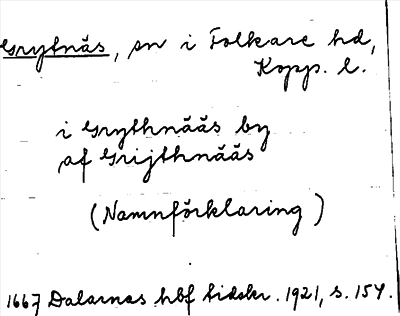 Grytnäs, sn i Folkare hd,
Kopp. l.
i Grythnääs by
af Grijthnääs
(Namnförklaring)
1667 Dalarnas hbf tidskr. 1921, s. 154.